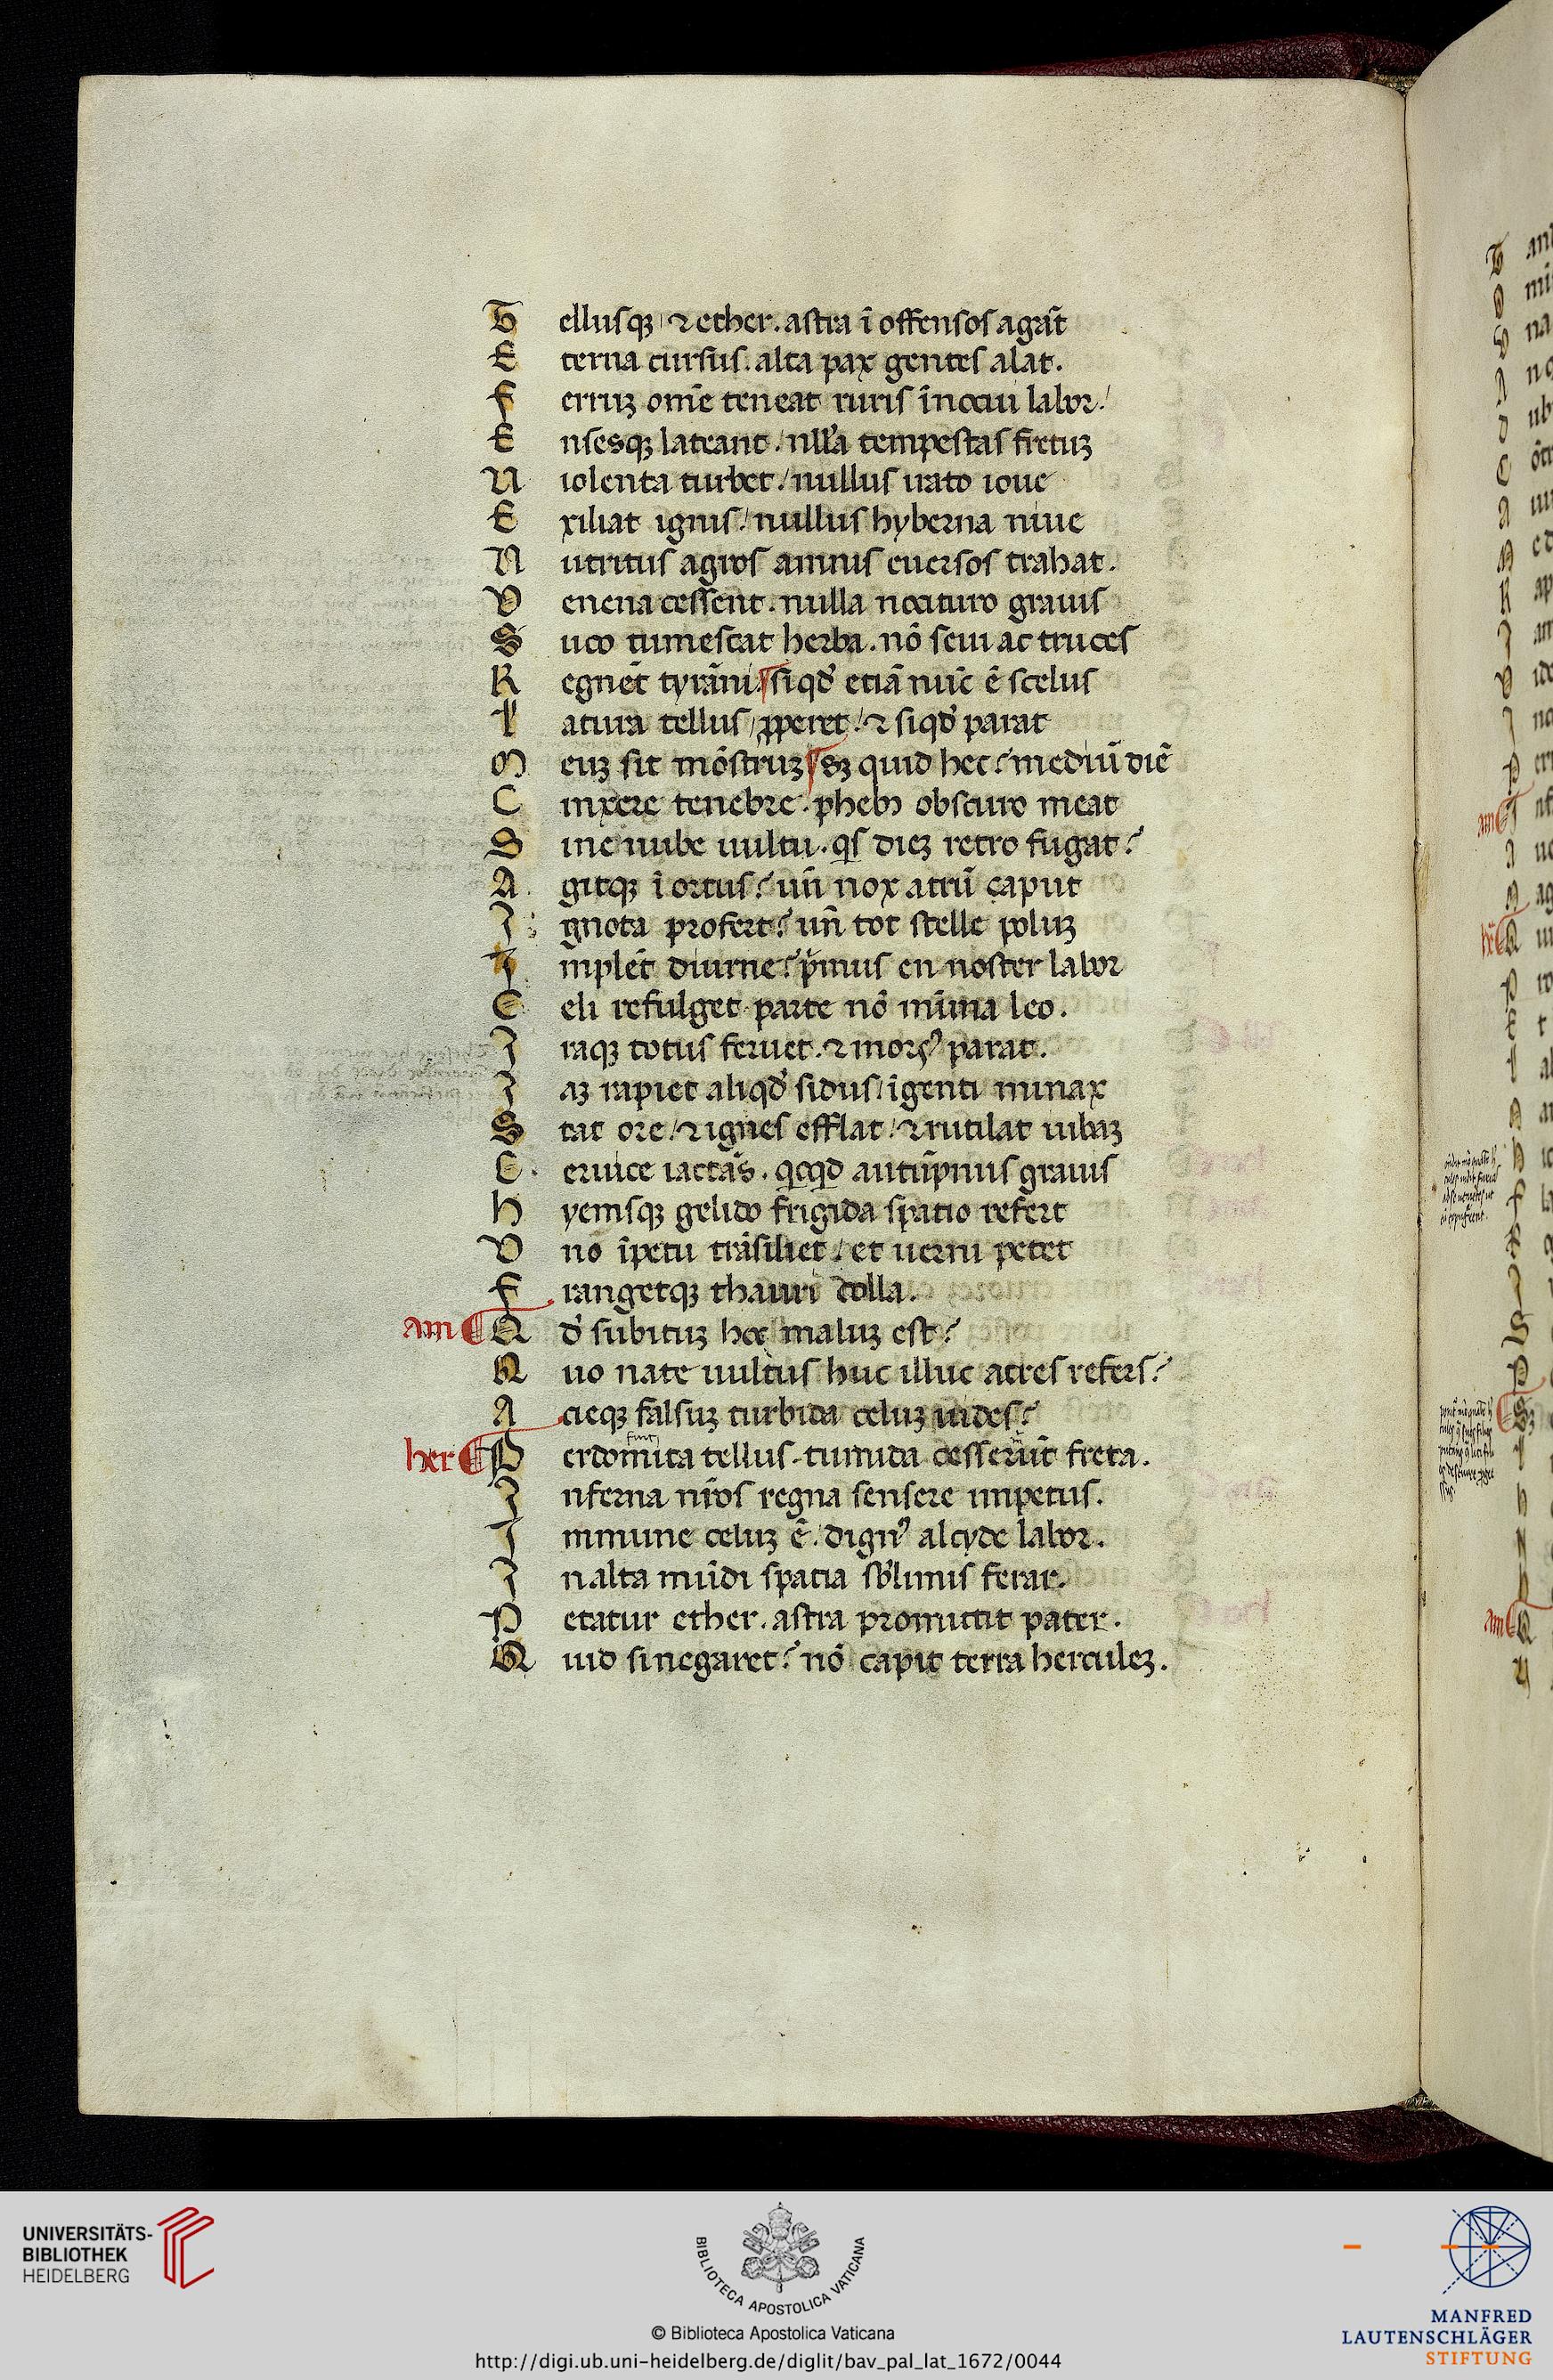 T ellusqꝫ / ⁊ ether. astra ī offensos agāt
E terna cursus. alta pax gentes alat.
F erruꝫ om̄e teneat ruris īnocui labor /
E nsesqꝫ lateant. / nll'a tempestas fretuꝫ
U iolenta turbet. / nullus irato ioue
E xiliat ignis. / nullus hyberna niue
N utritus agros amnis euersos trahat.
V enena cessent. nulla nocituro grauis
S uco tumescat herba. nō seui ac truces
R egnēt tyrāni. siqd' etiā nūc ē scelus
L atura tellus / ꝓperet. / ⁊ siqd' parat
M euꝫ sit mōstruꝫ sꝫ quid hec? mediū diē
C inxere tenebre. phebꝰ obscuro meat
S ine nube uultu. qs dieꝫ retro fugat?
A gitqꝫ ī ortus? un̄ nox atrū caput
I gnota profert? un̄ tot stelle poluꝫ
I mplēt diurne? pͥmus en noster labor
C eli refulget parte nō mīima leo.
I raqꝫ totus feruet. ⁊ morsꝰ parat.
I aꝫ rapiet aliqd' sidus / īgenti minax
S tat ore / ⁊ ignes efflat / ⁊ rutilat iubaꝫ
C eruice iactās. qcqd autūpnus grauis
H yemsqꝫ gelido frigida spatio refert
V no īpetu trāsiliet / et uerni petet
F rangetqꝫ thauri colla.
am Q d' subituꝫ hoc maluꝫ est?
Q uo nate uultus huc illuc acres refers?
A cieqꝫ falsuꝫ turbida celuꝫ uides?
her P erdomita tellus. tumida cesserūt freta.
I nferna nr̄os regna sensere impetus.
I mmune celuꝫ ē. / dignꝰ alcyde labor.
I n alta mūdi spatia sb'limis ferar.
P etatur ether. astra promittit pater.
Q uid si negaret? nō capit terra herculeꝫ.
UNIVERSITÄTS-
BIBLIOTHEK
HEIDELBERG
BIBLIOTECA APOSTOLICA VATICANA
© Biblioteca Apostolica Vaticana
http://digi.ub.uni-heidelberg.de/diglit/bav_pal_lat_1672/0044
MANFRED
LAUTENSCHLÄGER
STIFTUNG